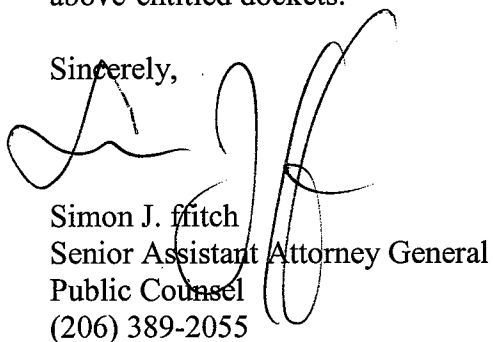 above-entitled dockets.
Sincerely,
Simon J. ffitch
Senior Assistant Attorney General
Public Counsel
(206) 389-2055